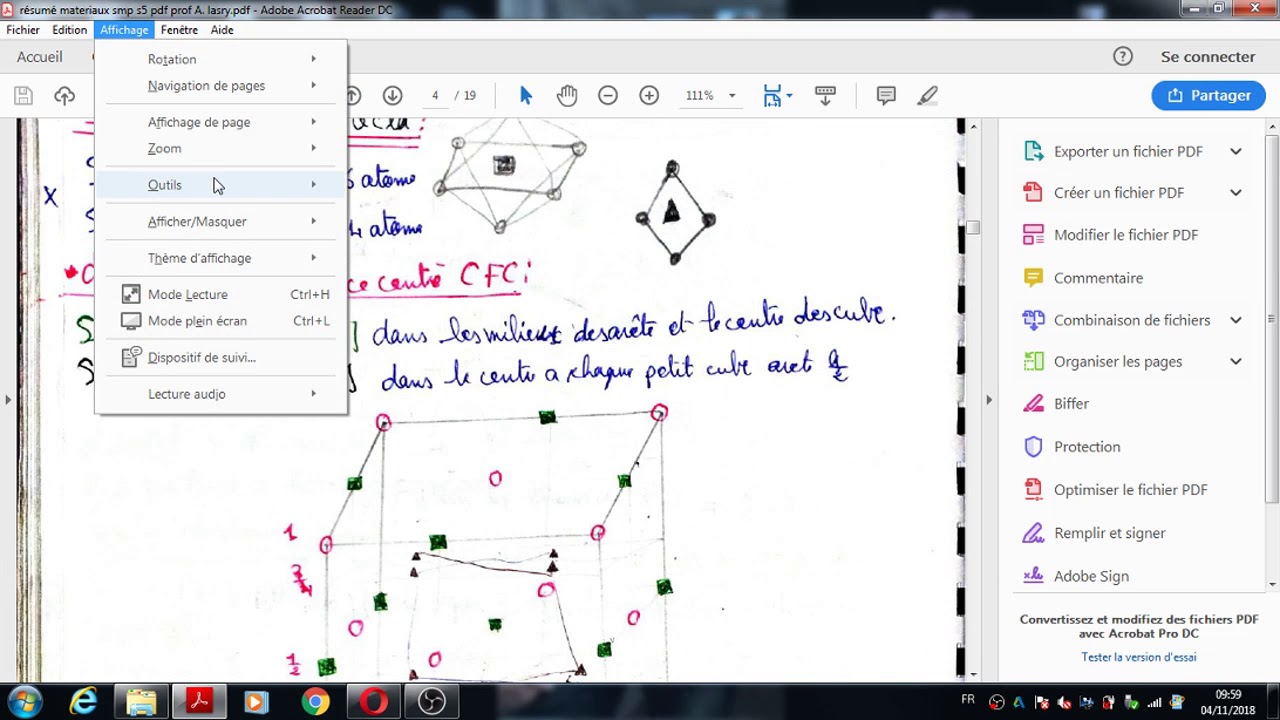 résumé materiaux smp s5 pdf prof A. lasry.pdf - Adobe Acrobat Reader DC
Fichier Edition Affichage Fenêtre Aide
Accueil
Se connecter
4 / 19
111%
Partager
Rotation
Navigation de pages
Affichage de page
Zoom
Outils
Afficher/Masquer
Thème d'affichage
Mode Lecture Ctrl+H
Mode plein écran Ctrl+L
Dispositif de suivi...
Lecture audio
atome
X
atome
ce centré CFC:
dans les milieux des arête et le centre des cube.
dans le centre a chaque petit cube aret a/2
1
3/4
1/2
Exporter un fichier PDF
Créer un fichier PDF
Modifier le fichier PDF
Commentaire
Combinaison de fichiers
Organiser les pages
Biffer
Protection
Optimiser le fichier PDF
Remplir et signer
Adobe Sign
Convertissez et modifiez des fichiers PDF
avec Acrobat Pro DC
Tester la version d'essai
FR
09:59
04/11/2018